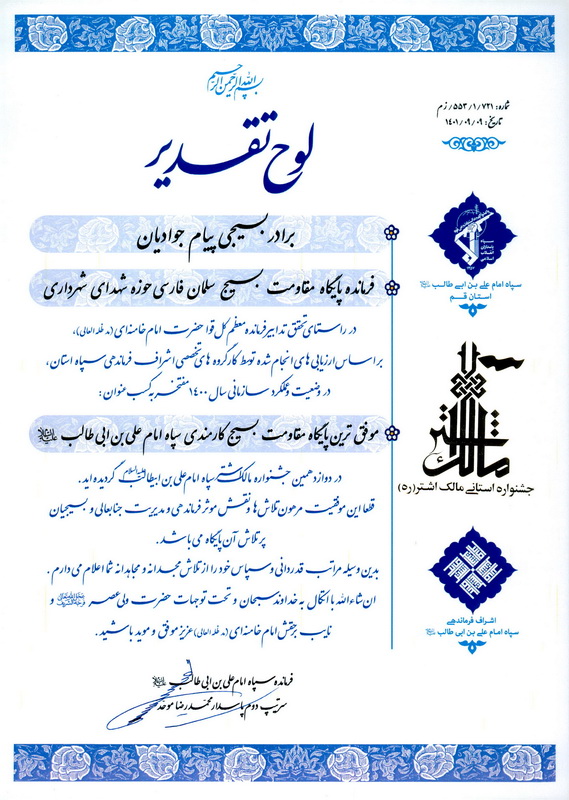 بسم الله الرحمن الرحیم
شماره: ۵۵۳/۱/۷۲۱/ ز م
تاریخ: ۱۴۰۱/۰۹/۰۹
لوح تقدیر
برادر بسیجی پیام جوادیان
فرمانده پایگاه مقاومت بسیج سلمان فارسی حوزه شهدای شهرداری
در راستای تحقق تدابیر فرمانده معظم کل قوا حضرت امام خامنه‌ای (مد ظله العالی)،
بر اساس ارزیابی های انجام شده توسط کارگروه های تخصصی اشراف فرماندهی سپاه استان،
در وضعیت و عملکرد سازمانی سال ۱۴۰۰ مفتخر به کسب عنوان:
موفق ترین پایگاه مقاومت بسیج کارمندی سپاه امام علی بن ابی طالب علیه السلام
در دوازدهمین جشنواره مالک اشتر سپاه امام علی بن ابیطالب علیه السلام گردیده اید.
قطعا این موفقیت مرهون تلاش ها و نقش موثر فرماندهی و مدیریت جنابعالی و بسیجیان
پر تلاش آن پایگاه می باشد.
بدین وسیله مراتب قدردانی و سپاس خود را از تلاش مجدانه و مجاهدانه شما اعلام می دارم.
ان شاءالله با اتکال به خداوند سبحان و تحت توجهات حضرت ولی عصر و
نایب برحقش امام خامنه ای (مد ظله العالی) عزیز موفق و موید باشید.
فرمانده سپاه امام علی بن ابی طالب علیه السلام
سرتیپ دوم پاسدار محمدرضا موحد
سپاه پاسداران انقلاب اسلامی
سپاه امام علی بن ابی طالب
استان قم
مالک اشتر
جشنواره استانی مالک اشتر(ره)
اشراف فرماندهی
سپاه امام علی بن ابی طالب